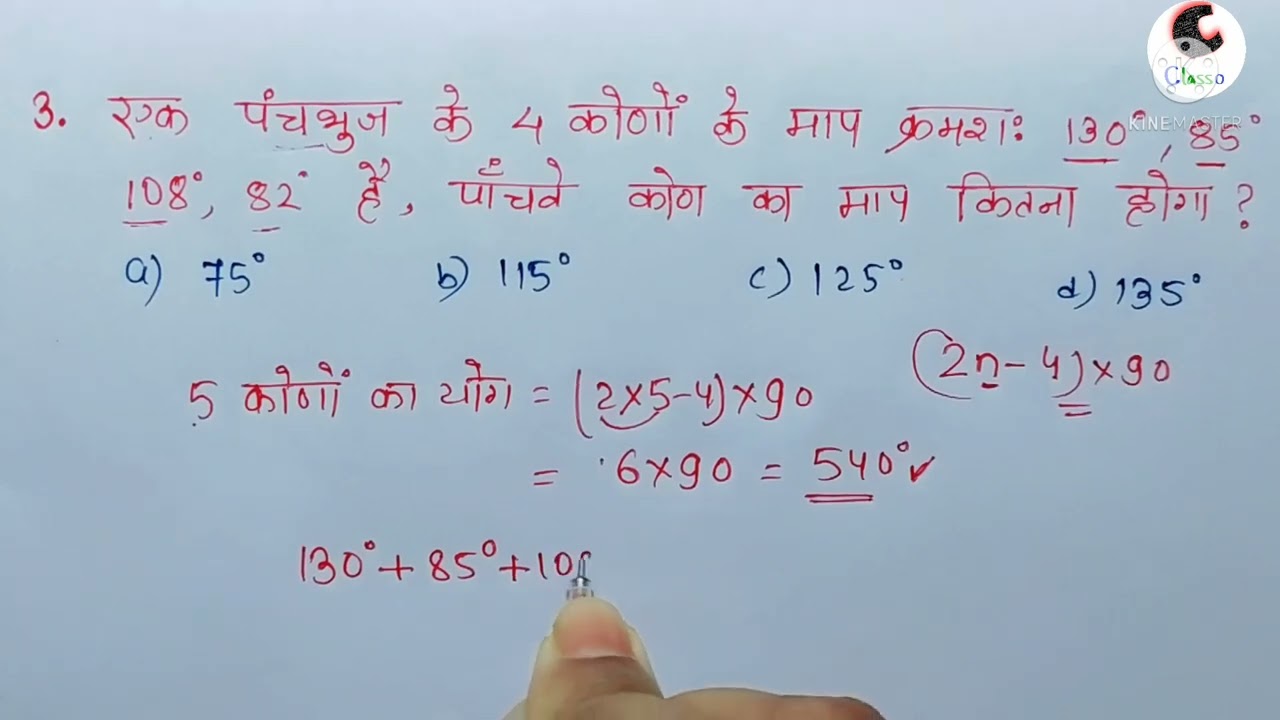 Classo
KINEMASTER
3. एक पंचभुज के 4 कोणों के माप क्रमशः 130°, 85°
108°, 82° है, पाँचवे कोण का माप कितना होगा ?
a) 75° b) 115° c) 125° d) 135°
(2n-4)×90
5 कोणों का योग = (2×5-4)×90
= 6×90 = 540° ✓
130° + 85° + 10